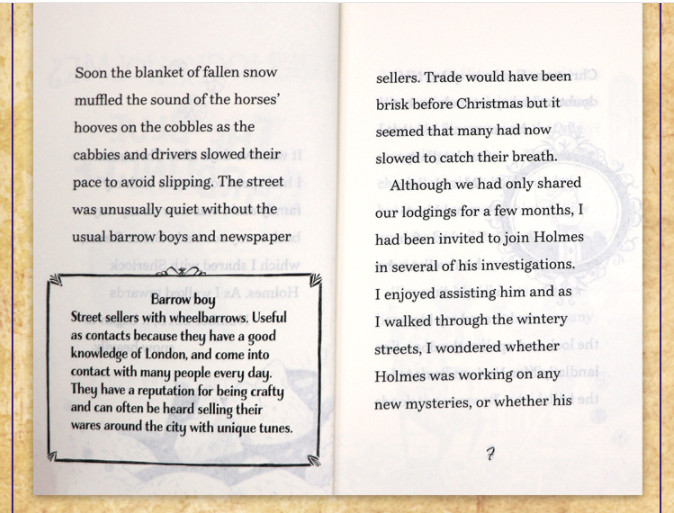 Soon the blanket of fallen snow
muffled the sound of the horses'
hooves on the cobbles as the
cabbies and drivers slowed their
pace to avoid slipping. The street
was unusually quiet without the
usual barrow boys and newspaper
Barrow boy
Street sellers with wheelbarrows. Useful
as contacts because they have a good
knowledge of London, and come into
contact with many people every day.
They have a reputation for being crafty
and can often be heard selling their
wares around the city with unique tunes.
sellers. Trade would have been
brisk before Christmas but it
seemed that many had now
slowed to catch their breath.
Although we had only shared
our lodgings for a few months, I
had been invited to join Holmes
in several of his investigations.
I enjoyed assisting him and as
I walked through the wintery
streets, I wondered whether
Holmes was working on any
new mysteries, or whether his